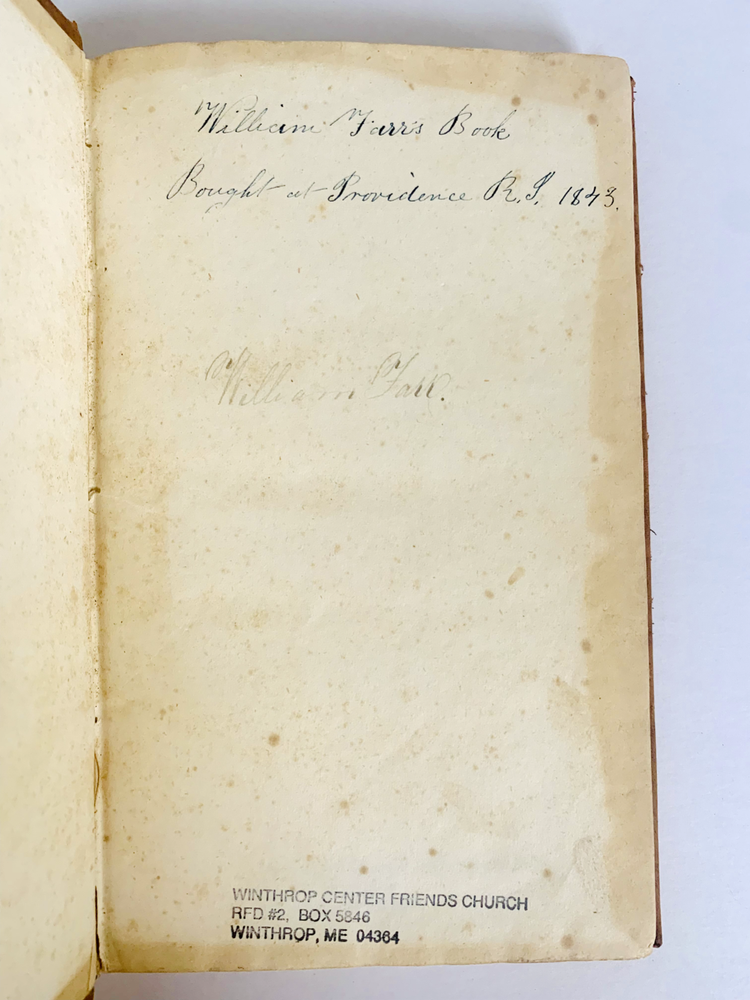 William Farr's Book
Bought at Providence R.I. 1843.
William Farr.
WINTHROP CENTER FRIENDS CHURCH
RFD #2, BOX 5846
WINTHROP, ME 04364